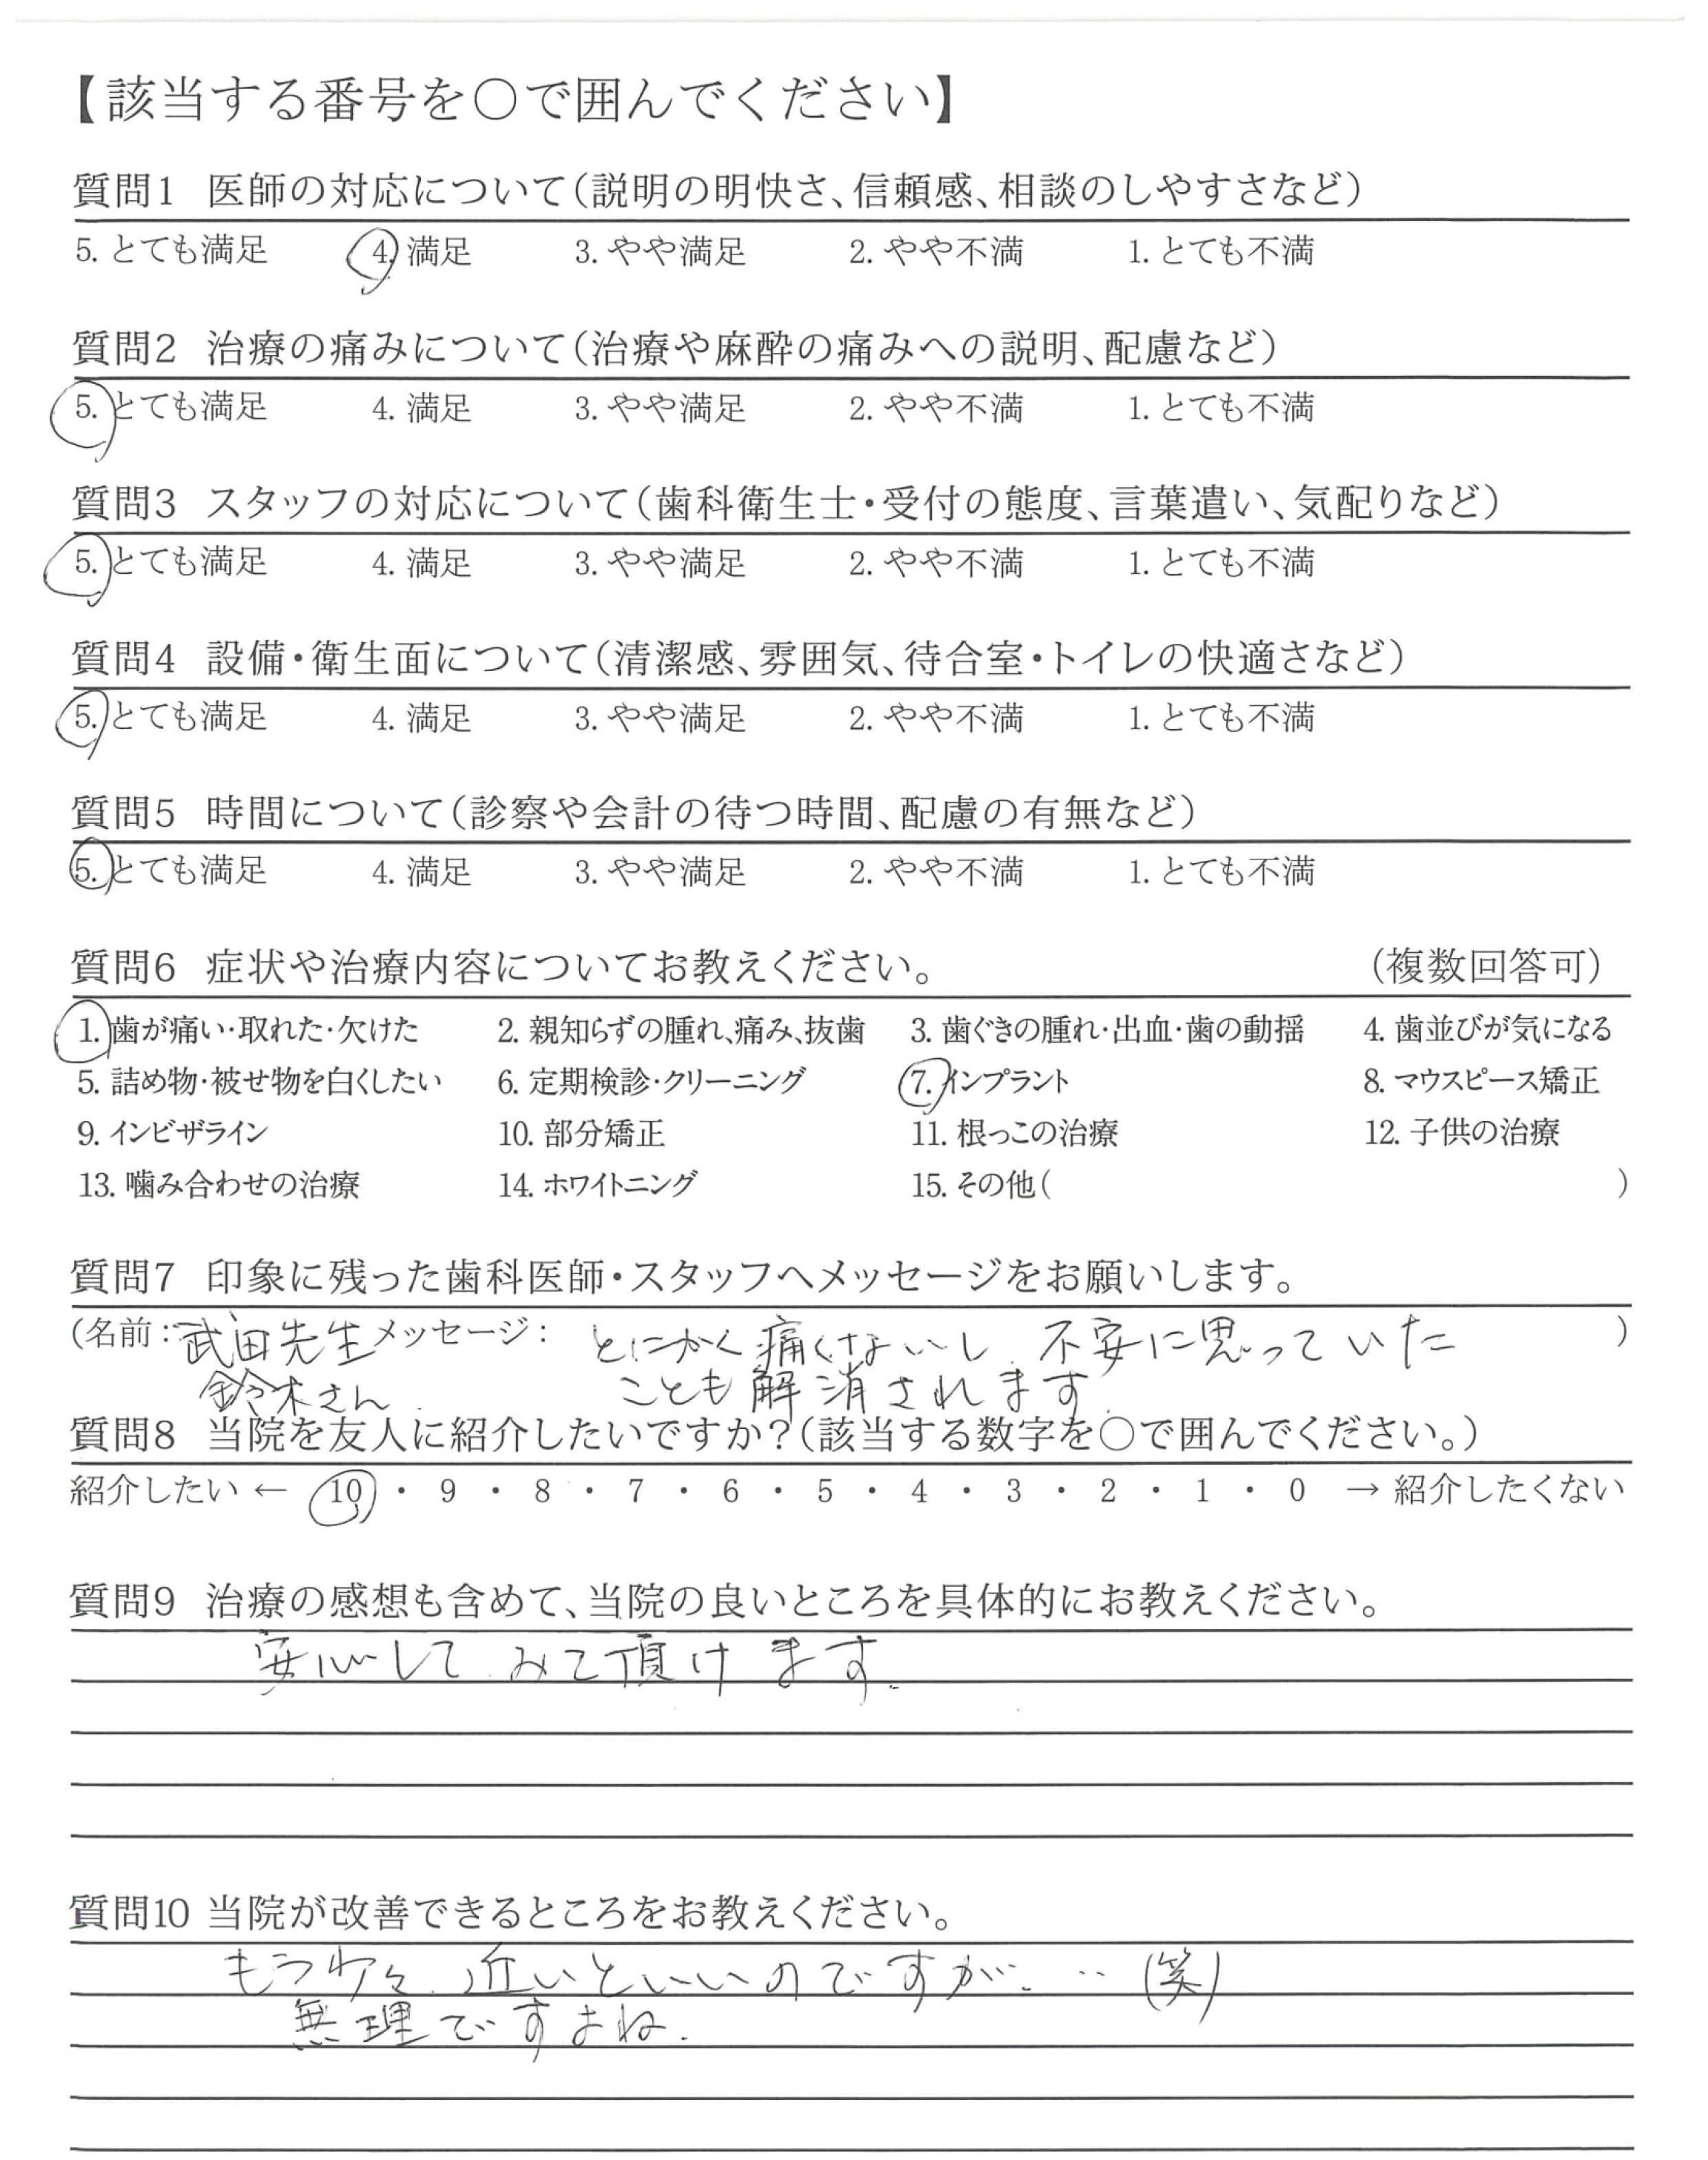 【該当する番号を○で囲んでください】
質問1 医師の対応について(説明の明快さ、信頼感、相談のしやすさなど)
5. とても満足 4. 満足 3. やや満足 2. やや不満 1. とても不満
質問2 治療の痛みについて(治療や麻酔の痛みへの説明、配慮など)
5. とても満足 4. 満足 3. やや満足 2. やや不満 1. とても不満
質問3 スタッフの対応について(歯科衛生士・受付の態度、言葉遣い、気配りなど)
5. とても満足 4. 満足 3. やや満足 2. やや不満 1. とても不満
質問4 設備・衛生面について(清潔感、雰囲気、待合室・トイレの快適さなど)
5. とても満足 4. 満足 3. やや満足 2. やや不満 1. とても不満
質問5 時間について(診察や会計の待つ時間、配慮の有無など)
5. とても満足 4. 満足 3. やや満足 2. やや不満 1. とても不満
質問6 症状や治療内容についてお教えください。 (複数回答可)
1. 歯が痛い・取れた・欠けた 2. 親知らずの腫れ、痛み、抜歯 3. 歯ぐきの腫れ・出血・歯の動揺 4. 歯並びが気になる
5. 詰め物・被せ物を白くしたい 6. 定期検診・クリーニング 7. インプラント 8. マウスピース矯正
9. インビザライン 10. 部分矯正 11. 根っこの治療 12. 子供の治療
13. 噛み合わせの治療 14. ホワイトニング 15. その他( )
質問7 印象に残った歯科医師・スタッフへメッセージをお願いします。
(名前:武田先生 メッセージ: とにかく痛くないし、不安に思っていた )
鈴木さん. ことも解消されます.
質問8 当院を友人に紹介したいですか?(該当する数字を○で囲んでください。)
紹介したい ← 10 ・ 9 ・ 8 ・ 7 ・ 6 ・ 5 ・ 4 ・ 3 ・ 2 ・ 1 ・ 0 → 紹介したくない
質問9 治療の感想も含めて、当院の良いところを具体的にお教えください。
安心して みて頂けます.
質問10 当院が改善できるところをお教えください。
もう少々 近いといいのですが.‥(笑)
無理ですよね.